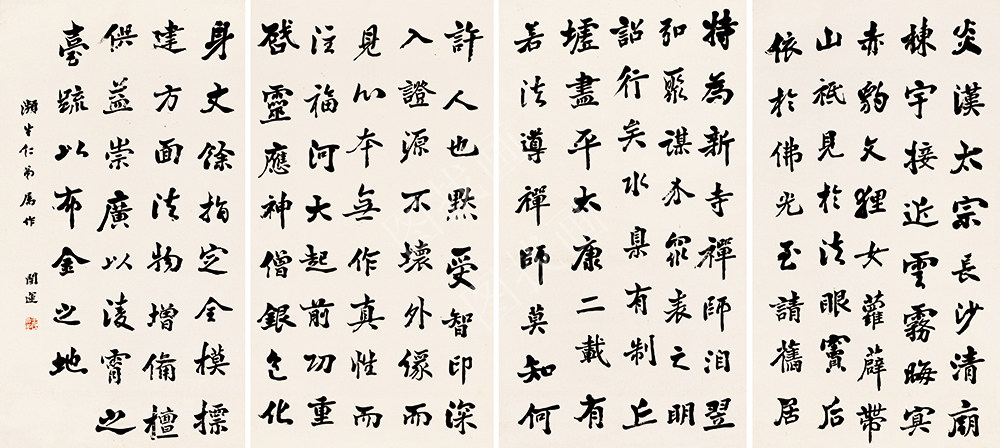 炎漢太宗長沙清廟
棟宇接近雲霧晦冥
赤豹文貍女蘿薜帶
山祇見於法眼竇后
依於佛光至請舊居
特為新寺禪師洎翌
弘聚謀介眾表之明
詔行矣水臬有制丘
墟盡平太康二載有
若法導禪師莫知何
許人也默受智印深
入證源不壞外像而
見心本無作真性而
注福河大起前功重
啟靈應神僧銀色化
身丈餘指定全模標
建方面法物增備檀
供益崇廣以凌霄之
臺疏以布金之地
瀕生仁弟屬作 闓運